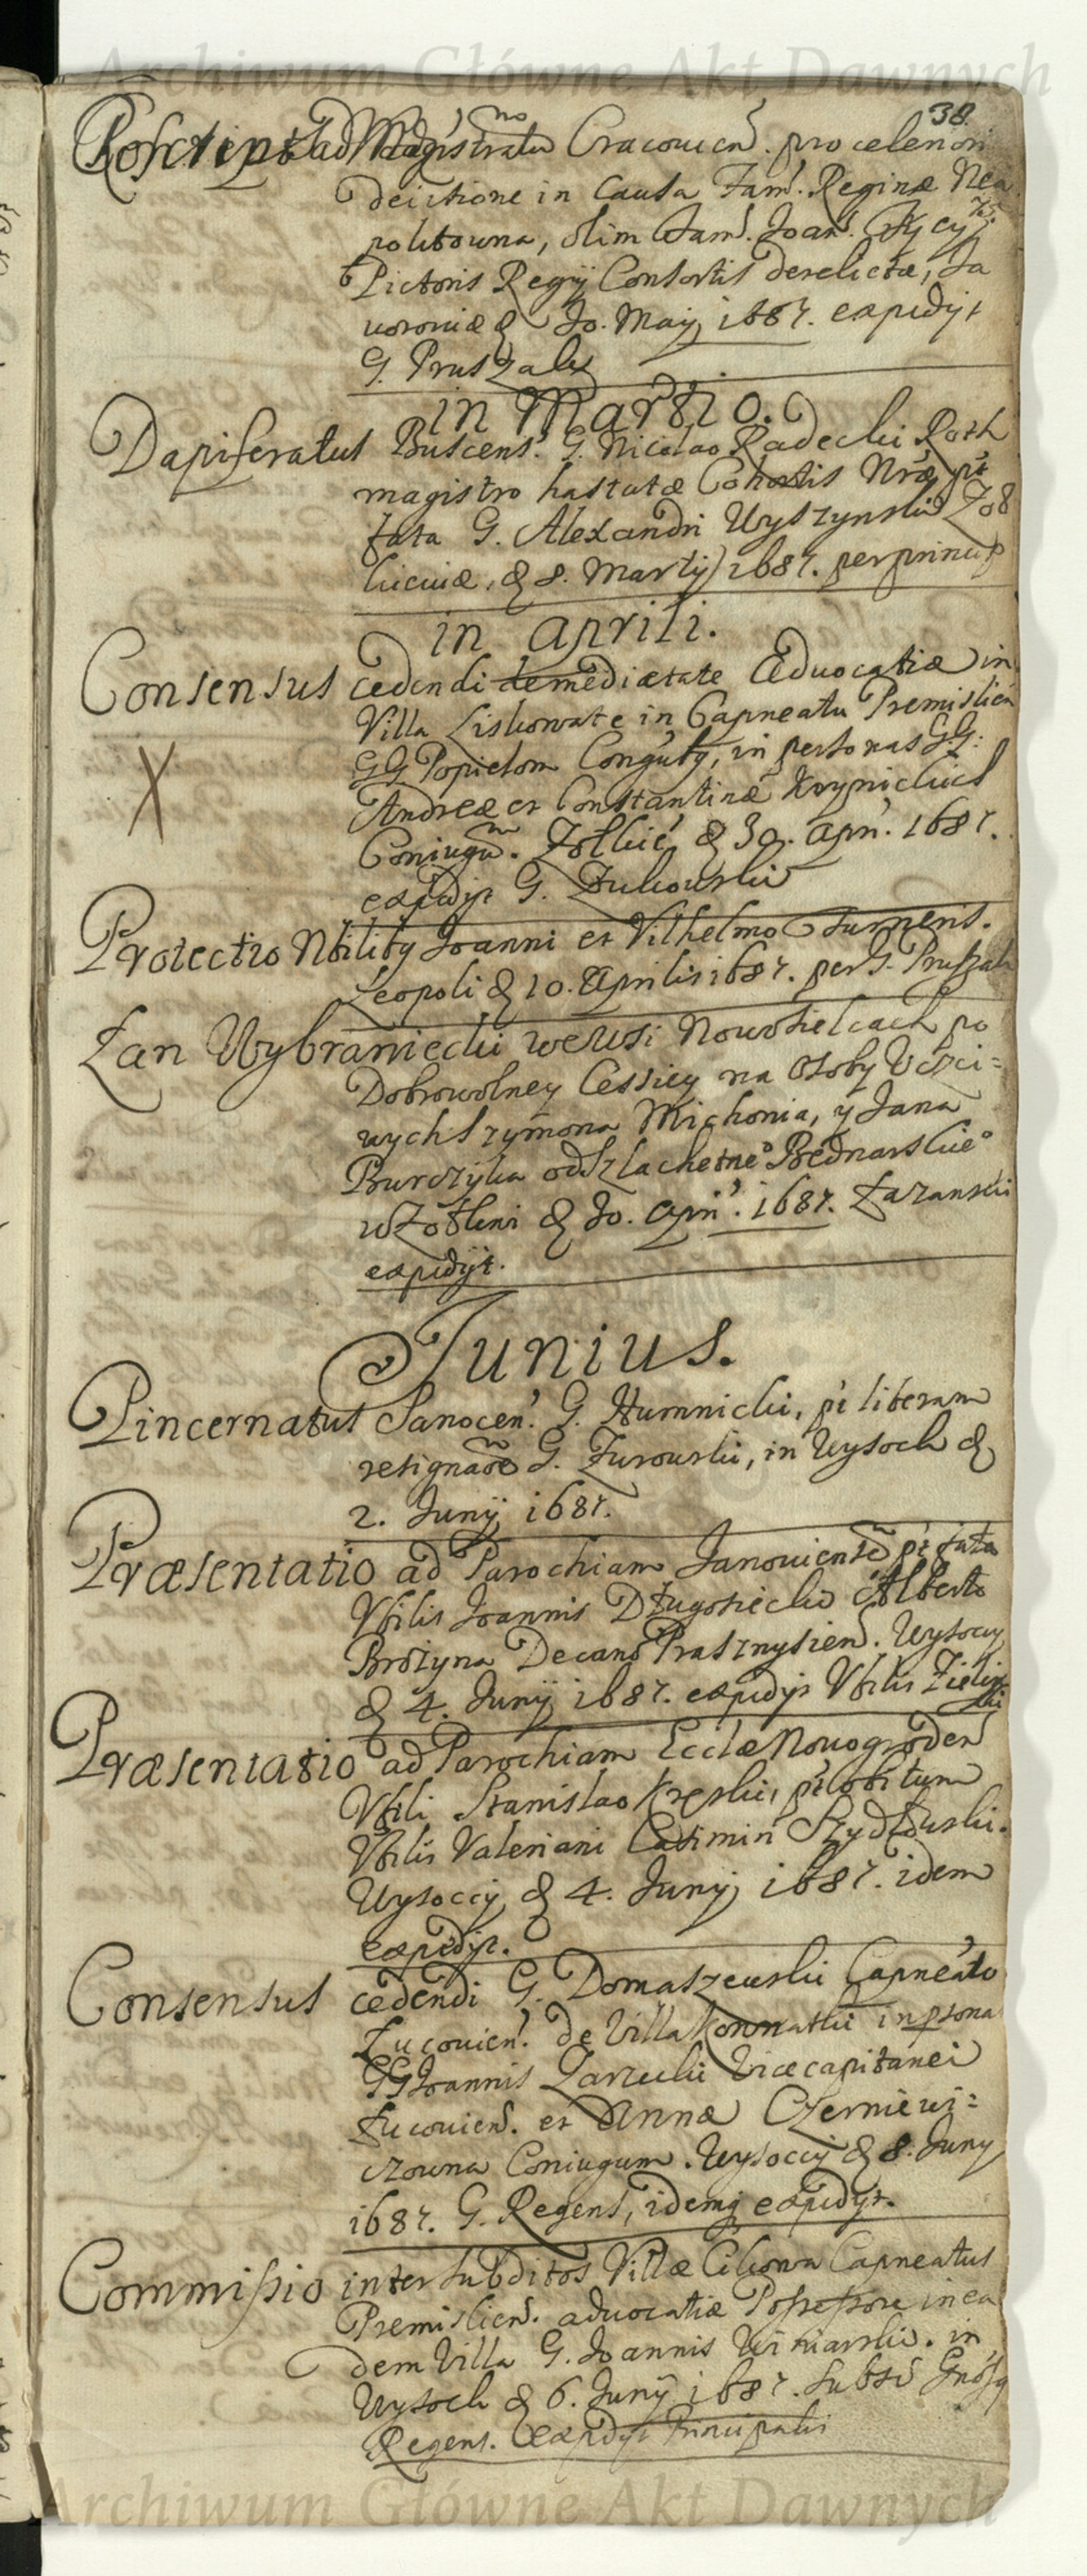 Archiwum Główne Akt Dawnych
38
Rescriptū ad Magistratū Cracouien̄. pro celeriori
decisione in Causa Fam̄. Reginæ Nea
politowna, olim Fam̄. Joan̄.
Pictoris Regij Consortis derelictæ, Ja
uoroviæ d 30. Maij 1687. expedijt
G. Pruszak
in Martio.
Dapiferatus Buscens. G. Nicolao Radecki Roth
magistro hastatæ Cohortis Nræ pt
fata G. Alexandri Wyszynski Zol
kieuiæ, d 8. Martij 1687. per princip
in Aprili.
Consensus cedendi de medietate Aduocatiæ in
Villa Liskowate in Capneatu Premislien̄
GG Popielom Conguby, in personas GG:
Andreæ et Constantinæ Krynickich
Coniugū. Zolkie, d 30. Apri. 1687.
expedijt G. Zukowski
Protectio Nbilibq Joanni et Vilhelmo Turneris.
Leopoli d 10. Aprilis 1687. per G. Pruszak
Łan Wybraniecki we wsi Nowosielcach po
Dobrowolney Cessiey na Osoby Vczci=
wych Szymona Michonia, y Jana
Burczyka od Szlachetneo Bednarskieo
w Zołkwi d 30. Apri. 1687. Łazanski
expedijt.
Junius.
Pincernatus Sanocen̄. G. Humnicki, pt liberam
resignaōe G. Zurowski, in Wysock d
2. Junij 1687.
Præsentatio ad Parochiam Janouiensē pt fata
Vblis Joannis Długosiecki Alberto
Brozyna Decano Prasznysien̄. Wysoccij
d 4. Junij 1687. expedijt Vblis Zielin
ski
Præsentatio ad Parochiam Ecclæ Nouogroden̄
Vbli Stanislao Kreski, pt obitum
Vblis Valeriani Casimiri Szydłowski.
Wysoccij d 4. Junij 1687. idem
expedijt.
Consensus cedendi G. Domaszewski Capneato
Łucouien̄. de Villa Konwatki in psona
GG Joannis Zarzecki Vicecapitanei
Łucouien̄. et Annæ Czerniewi=
czowna Coniugum. Wysoccij d 8. Junij
1687. G. Regens, idemq expedijt.
Commissio inter subditos Villæ Cikowa Capneatus
Premislien̄. aduocatiæ Possessore in ea
dem Villa G. Joannis Winiarski. in
Wysock d 6. Junij 1687. subsc̄ Gnosq
Regens. Expedijt Principalis
Archiwum Główne Akt Dawnych